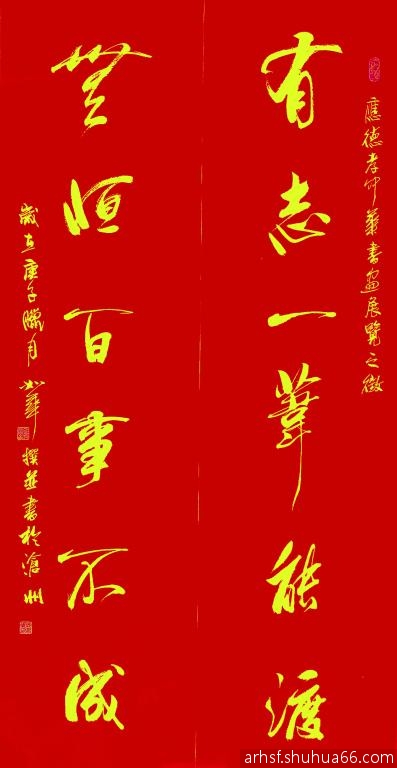 應德孝中華書畫展覽之徵
有志一葦能渡
無恒百事不成
歲在庚子臘月
撰並書於滄州
arhsf.shuhua66.com